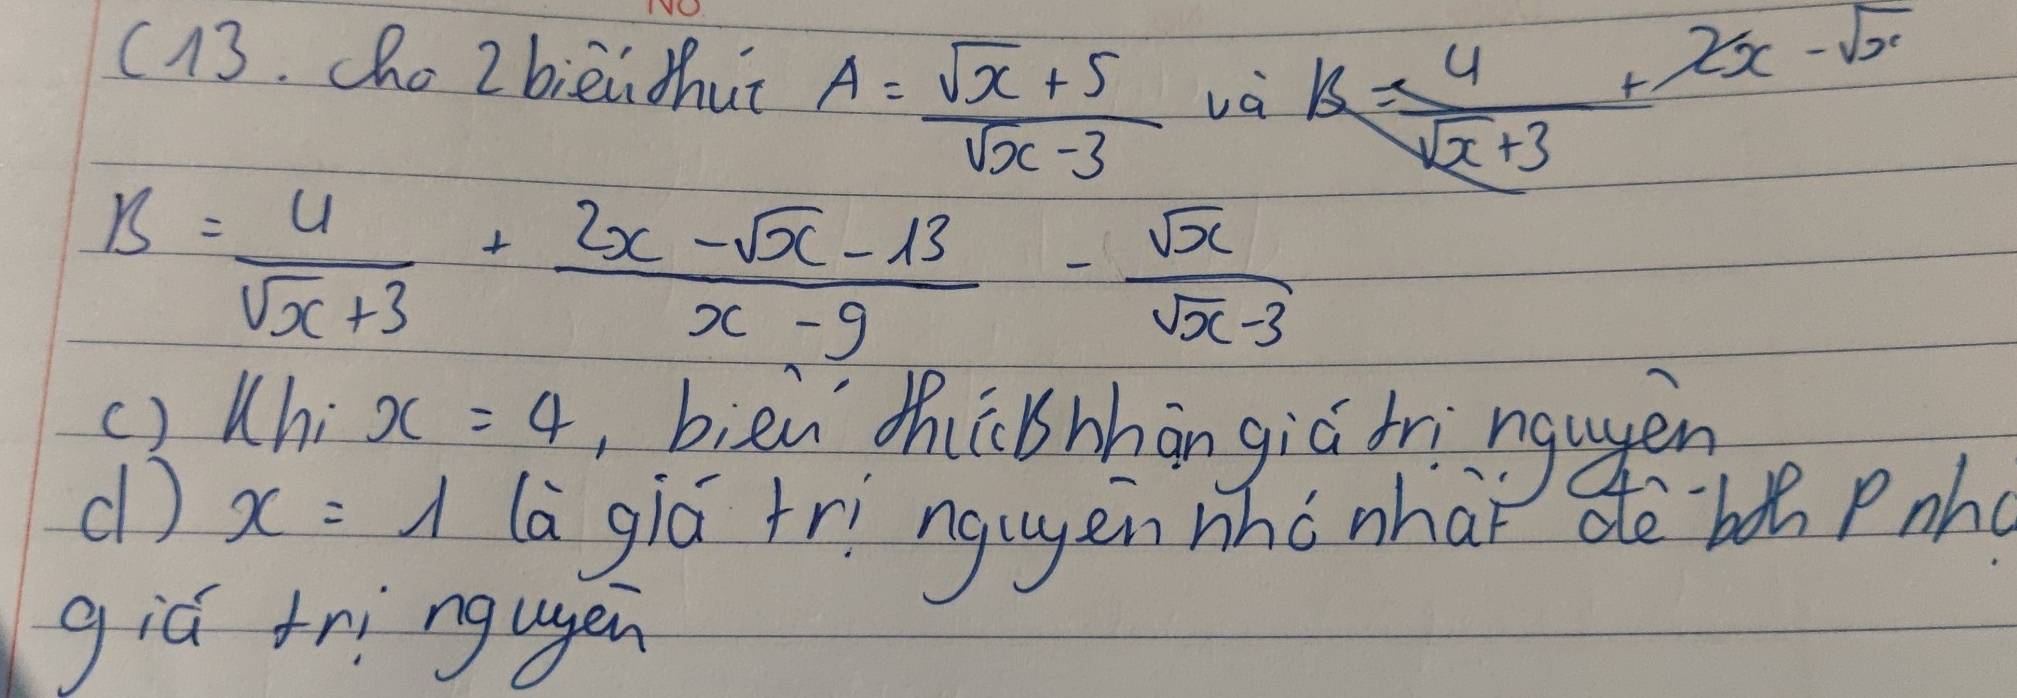 NO
C13. Cho 2 biểu thức A = (√x + 5)/(√x - 3) và B = 4/(√x + 3) + 2x - √x
B = 4/(√x + 3) + (2x - √x - 13)/(x - 9) - √x/(√x - 3)
c) Khi x = 4, biểu thức B nhận giá trị nguyên
d) x = 1 là giá trị nguyên nhỏ nhất để bth P
giá trị nguyên